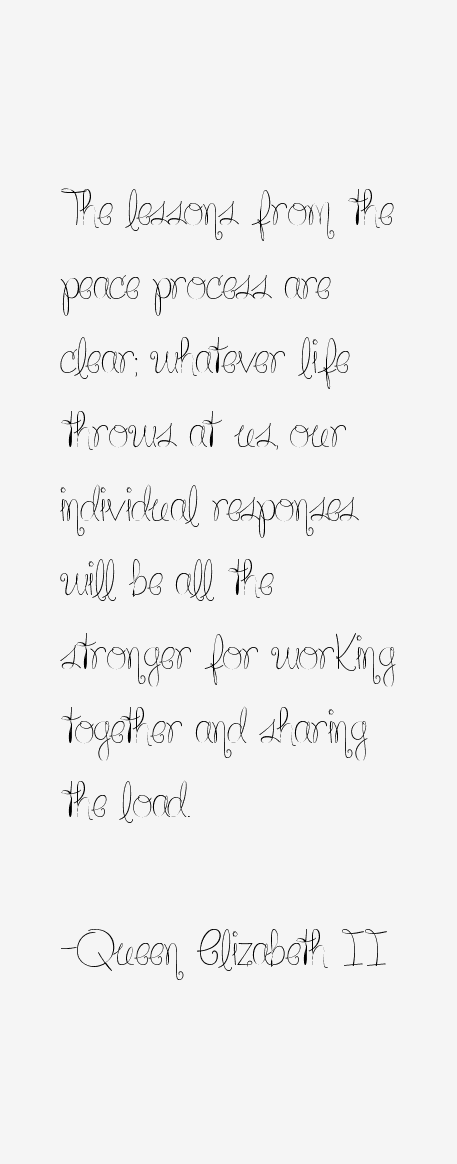 The lessons from the
peace process are
clear; whatever life
throws at us, our
individual responses
will be all the
stronger for working
together and sharing
the load.
-Queen Elizabeth II